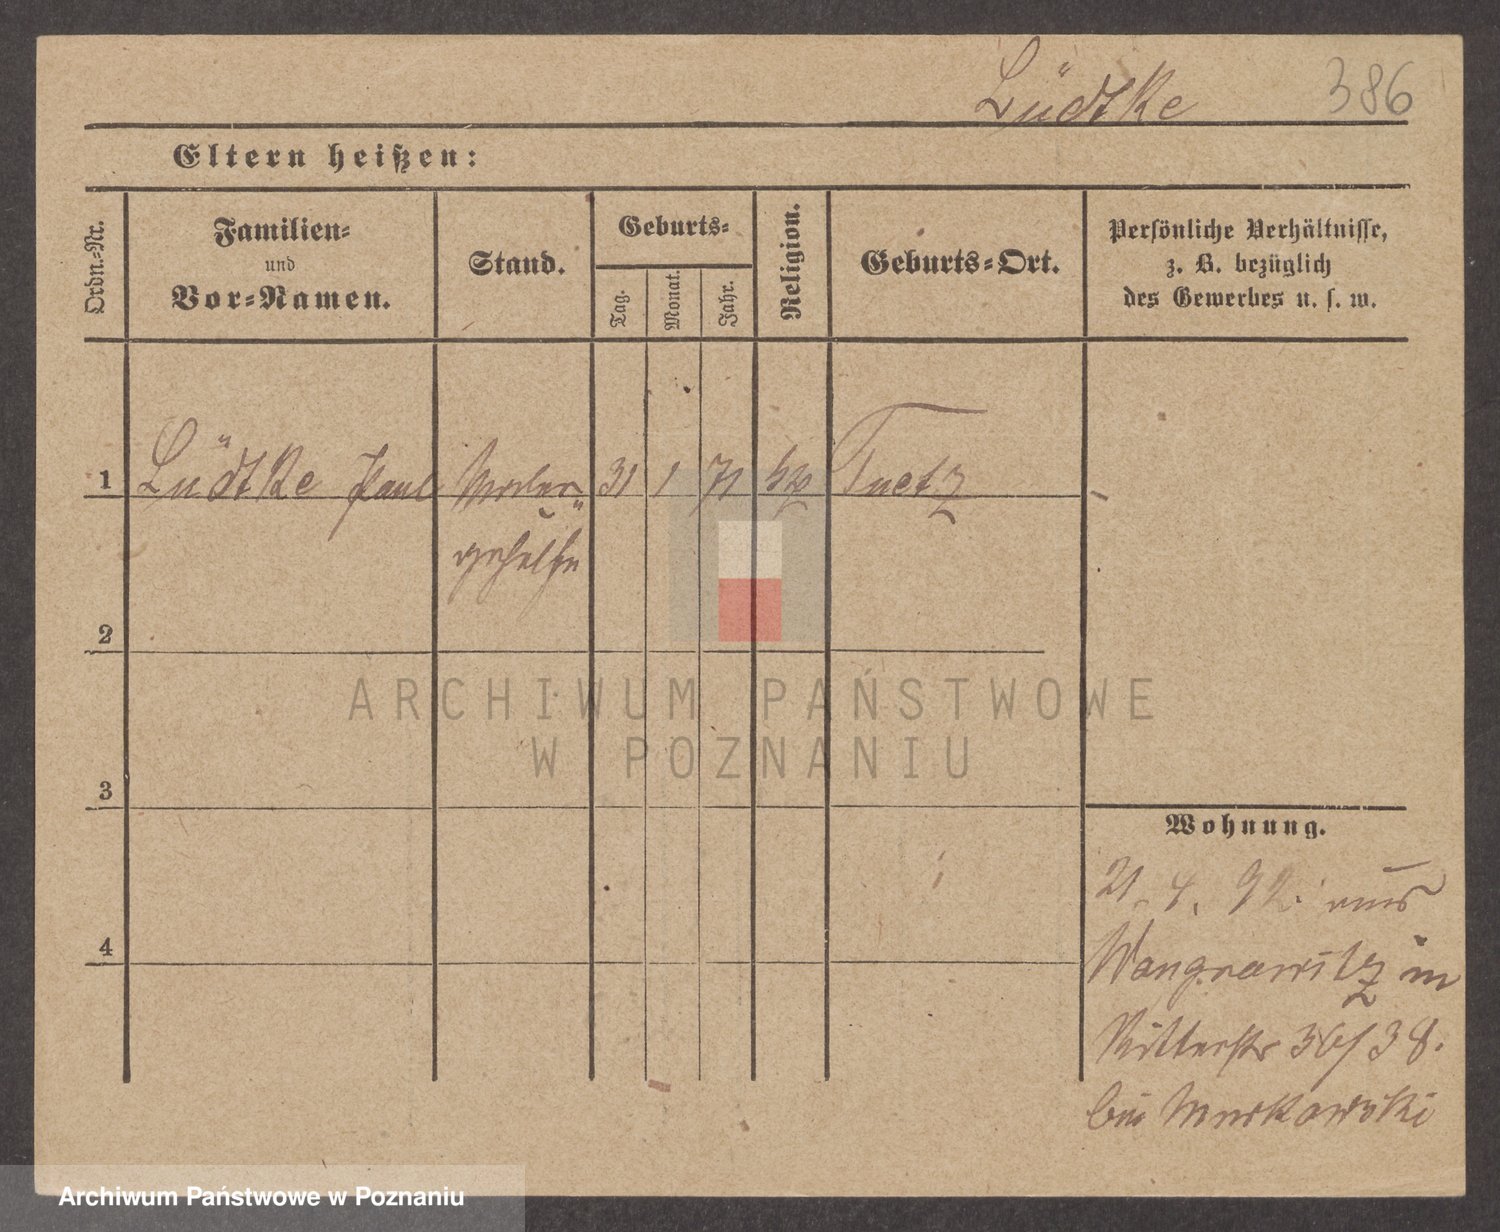 Lüdtke 386
Eltern heißen:
Ordn.-Nr.
Familien-
und
Vor-Namen.
Stand.
Geburts-
Tag.
Monat.
Jahr.
Religion.
Geburts-Ort.
Persönliche Verhältnisse,
z. B. bezüglich
des Gewerbes u. s. w.
1 Lüdtke Paul Maler 31 1 71 Tuetz
gehülfe
2
3
4
Wohnung.
21. 4. 92. aus
Wongrowitz in
Ritterstr 36/38.
bei
ARCHIWUM PAŃSTWOWE
W POZNANIU
Archiwum Państwowe w Poznaniu